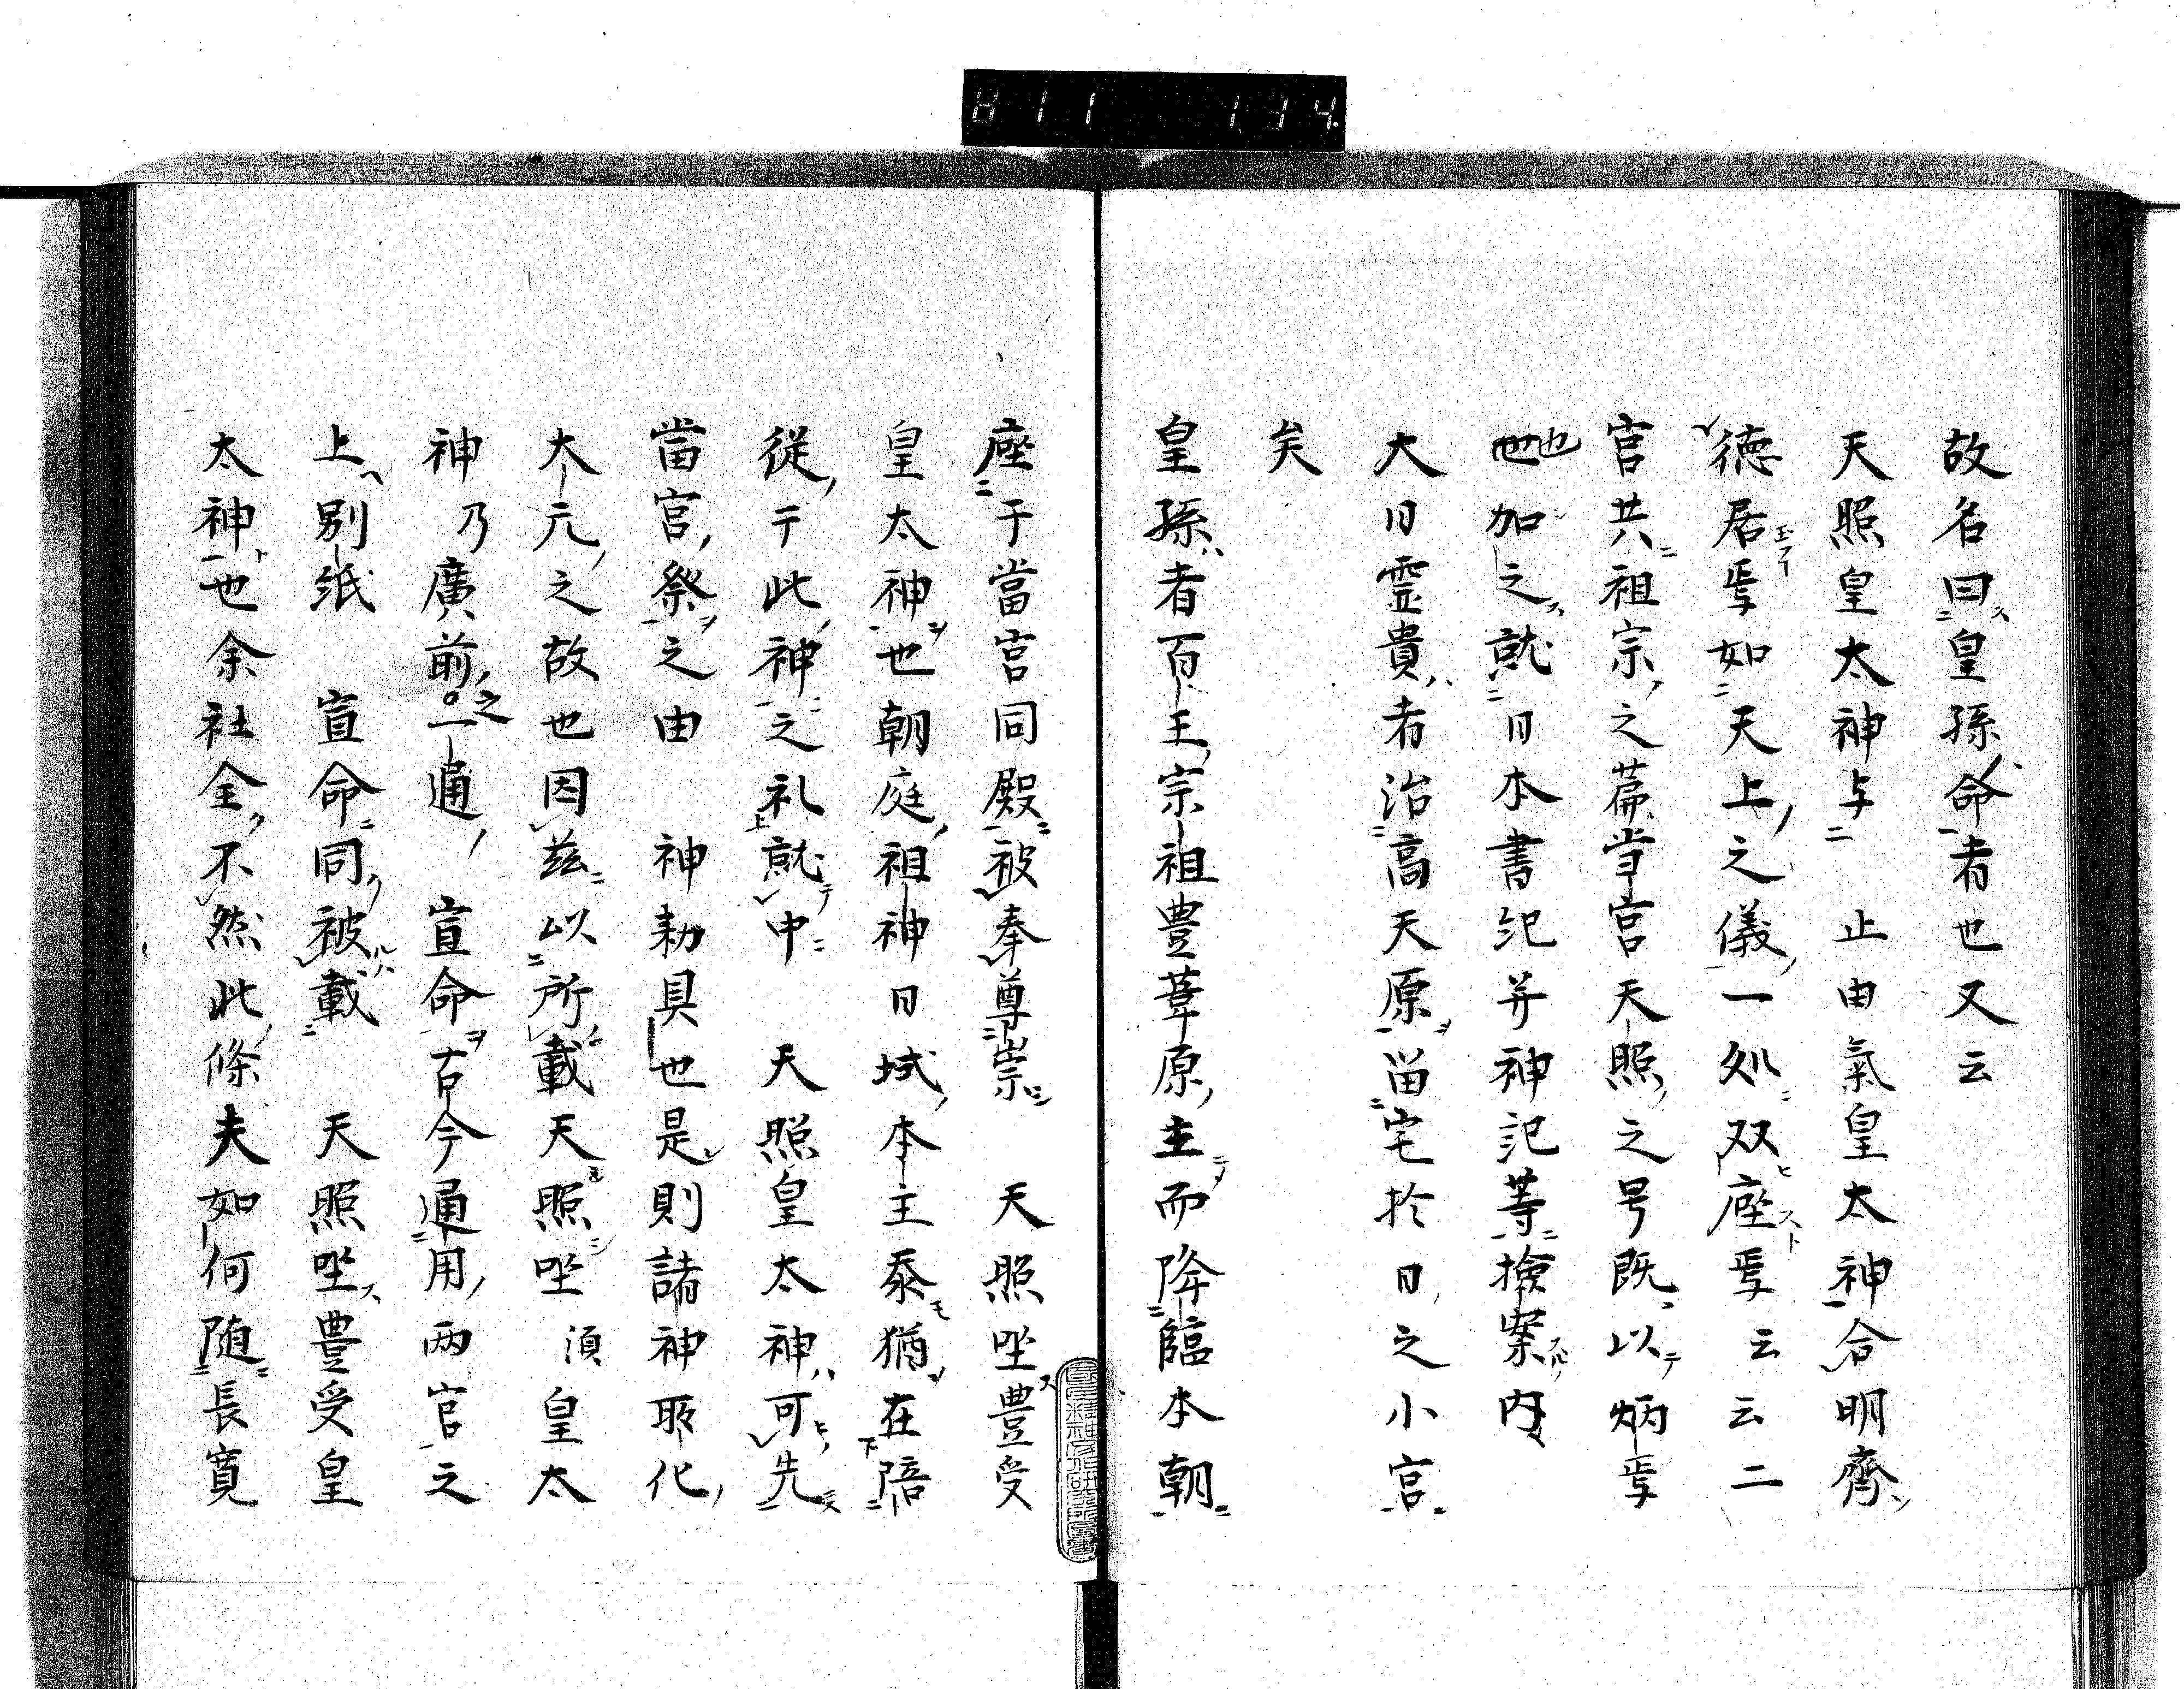 故名曰皇孫命者也又云
天照皇太神与 止由氣皇太神合明齊
徳居焉如天上之儀一処双座焉云云二
宮共祖宗之篇当宮天照之号既以炳焉
也加之就日本書紀并神記等撿案内
大日霊貴者治高天原留宅於日之小宮
矣
皇孫者百王宗祖豊葦原主而降臨本朝
座于當宮同殿被奉尊崇 天照坐豊受
皇太神也朝庭祖神日域本主泰猶在陪
従于此神之礼就中 天照皇太神可先
當宮祭之由 神勅具也是則諸神所化
大元之故也因茲以所載天照坐 須皇太
神乃廣前之一通 宣命古今通用両宮之
上別紙 宣命同被載 天照坐豊受皇
太神也余社全不然此條夫如何随長寛